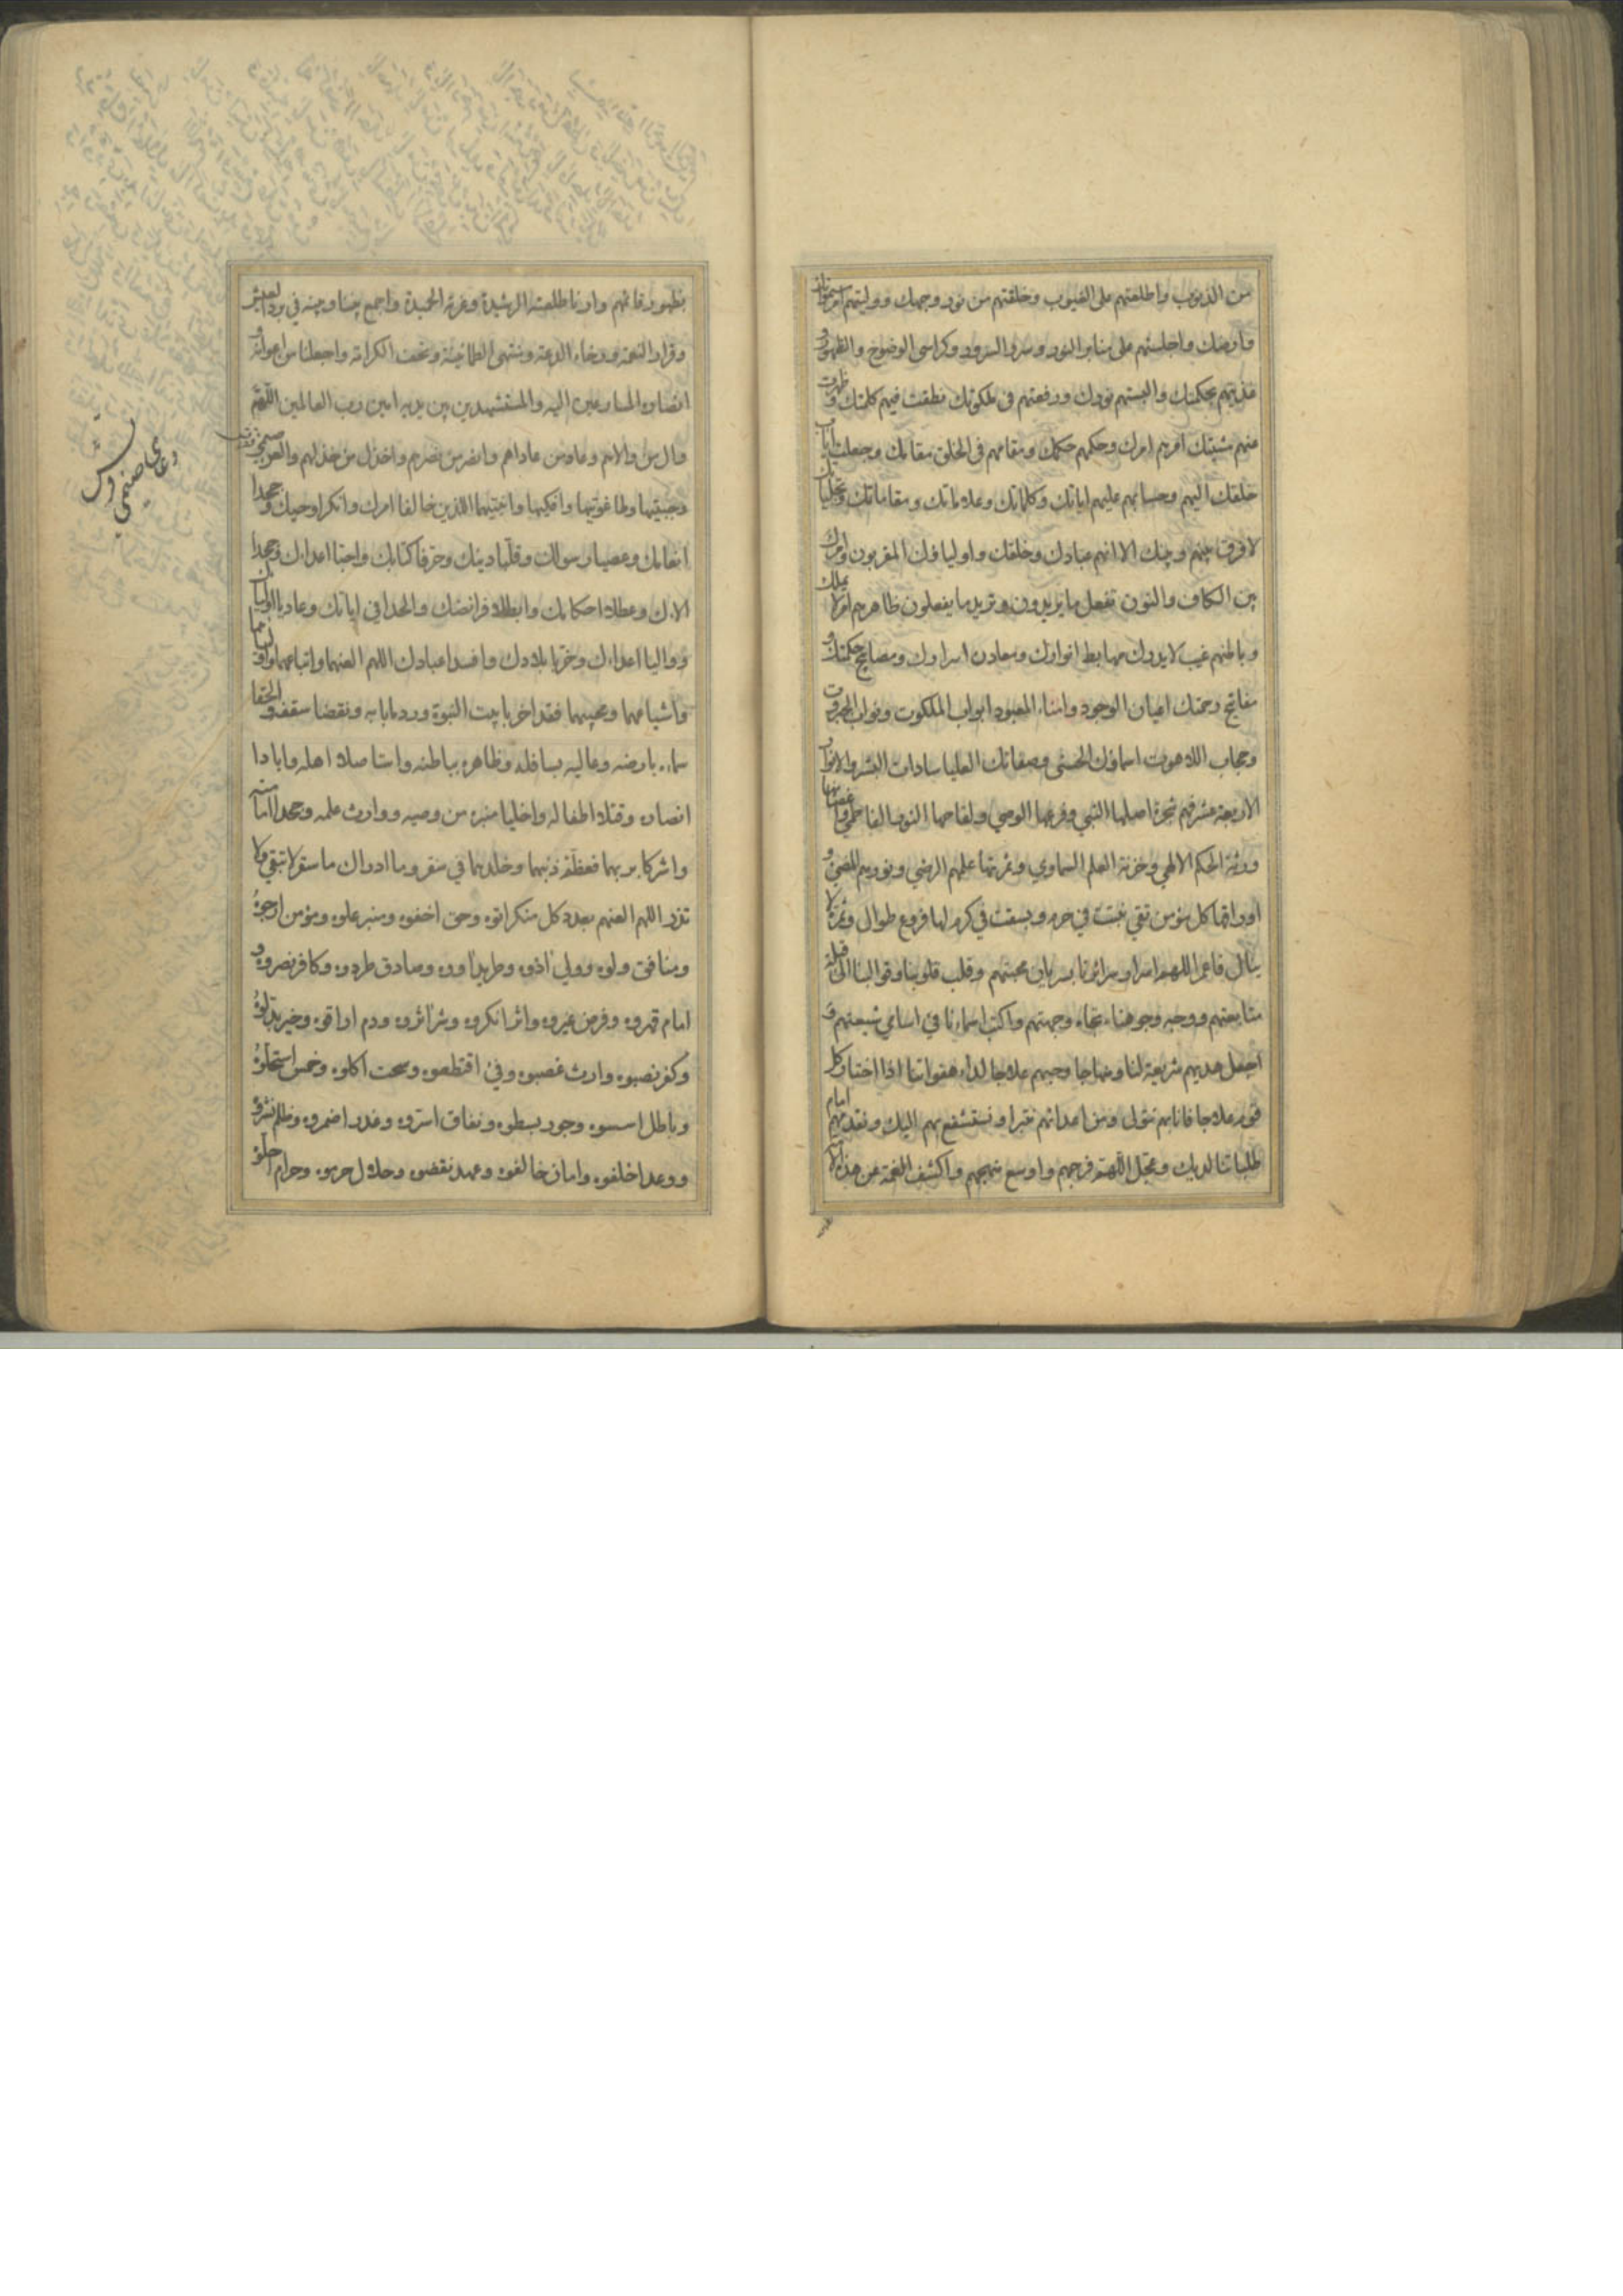 من الذنوب واطلعتهم على الغيوب وخلقتهم من نور وجهك ووليتهم امر سمواتك
وارضك واجلستهم على منابر النور وسرر السرور وكراسى الوضوح والظهور و
غذيتهم بحكمتك والبستهم نورك ورفعتهم فى ملكوتك نطقت فيهم كلمتك وظهرت
منهم مشيتك امرهم امرك وحكمهم حكمك ومقامهم فى الخلق مقامك وجعلت اياب
خلقك اليهم وحسابهم عليهم اياتك وكلماتك وعلاماتك ومقاماتك وتجلياتك
لا فرق بينهم وبينك الا انهم عبادك وخلقك واولياؤك المقربون وامرك
بين الكاف والنون تفعل ما يريدون وتريد ما يفعلون ظاهرهم امر لا يملك
وباطنهم غيب لا يدرك مهابط انوارك ومعادن اسرارك ومصابيح حكمتك و
مفاتيح رحمتك اعيان الوجود وامناء المعبود ابواب الملكوت ونواب الجبروت
وحجاب اللاهوت اسماؤك الحسنى وصفاتك العليا سادات البشر والانوار
الاربعة عشر فهم شجرة اصلها النبي وفرعها الوصي ولقاحها النور الفاطمي واغصانها
ورثة الحكم الالهي وخزنة العلم السماوي وثمرتها علمهم الرضي ونورهم المضيئ و
اوراقها كل مؤمن تقي نبتت في حرم وبسقت في كرم لها فروع طوال وثمرة لا
ينال فاعمر اللهم اسرار سرائرنا بسريان محبتهم وقلب قلوبنا وقوالبنا الى قبلة
متابعتهم ووجه وجوهنا تجاه وجهتهم واكتب اسماءنا في اسامي شيعتهم و
اجعل هديهم شريعة لنا ومنهاجا وحبهم علاجا لداء هفواتنا اذا اختار كل
قوم علاجا فانا بهم نتولى ومن اعدائهم نتبرا ونستشفع بهم اليك ونقدمهم امام
طلباتنا لديك وعجل اللهم فرجهم واوسع منهجهم واكشف الغمة عن هذه الامة
بظهور قائمهم وارنا طلعته الرشيدة وغرته الحميدة واجمع بيننا وبينه في برد العيش
وقرار النعمة ورخاء الدعة ومنتهى الطمانينة وتحف الكرامة واجعلنا من اعوانه و
انصاره المسارعين اليه والمستشهدين بين يديه امين رب العالمين اللهم
وال من والاهم وعاد من عاداهم وانصر من نصرهم واخذل من خذلهم والعن صنمي قريش
وجبتيها وطاغوتيها وافكيها وابنتيهما اللذين خالفا امرك وانكرا وحيك وجحدا
انعامك وعصيا رسولك وقلبا دينك وحرفا كتابك واحبا اعداءك وجحدا
الاءك وعطلا احكامك وابطلا فرائضك والحدا في اياتك وعاديا اولياءك
وواليا اعداءك وخربا بلادك وافسدا عبادك اللهم العنهما واتباعهما واولياءهما
واشياعهما ومحبيهما فقد اخربا بيت النبوة وردما بابه ونقضا سقفه والحقا
سماءه بارضه وعاليه بسافله وظاهره بباطنه واستاصلا اهله وابادا
انصاره وقتلا اطفاله واخليا منبره من وصيه ووارث علمه وجحدا امامته
واشركا بربهما فعظم ذنبهما وخلدهما في سقر وما ادراك ما سقر لا تبقي ولا
تذر اللهم العنهم بعدد كل منكر اتوه وحق اخفوه ومنبر علوه ومؤمن ارجوه
ومنافق ولوه وولي اذوه وطريد اووه وصادق طردوه وكافر نصروه و
امام قهروه وفرض غيروه واثر انكروه وشر اثروه ودم اراقوه وخير بدلوه
وكفر نصبوه وارث غصبوه وفئ اقتطعوه وسحت اكلوه وخمس استحلوه
وباطل اسسوه وجور بسطوه ونفاق اسروه وغدر اضمروه وظلم نشروه
ووعد اخلفوه وامان خالفوه وعهد نقضوه وحلال حرموه وحرام احلوه
دعاى صنمي
قريش